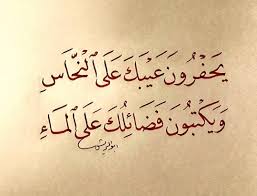 يَحْفِرُونَ عَيْبَكَ عَلَى النُّحَاسِ
وَيَكْتُبُونَ فَضَائِلَكَ عَلَى المَاءِ